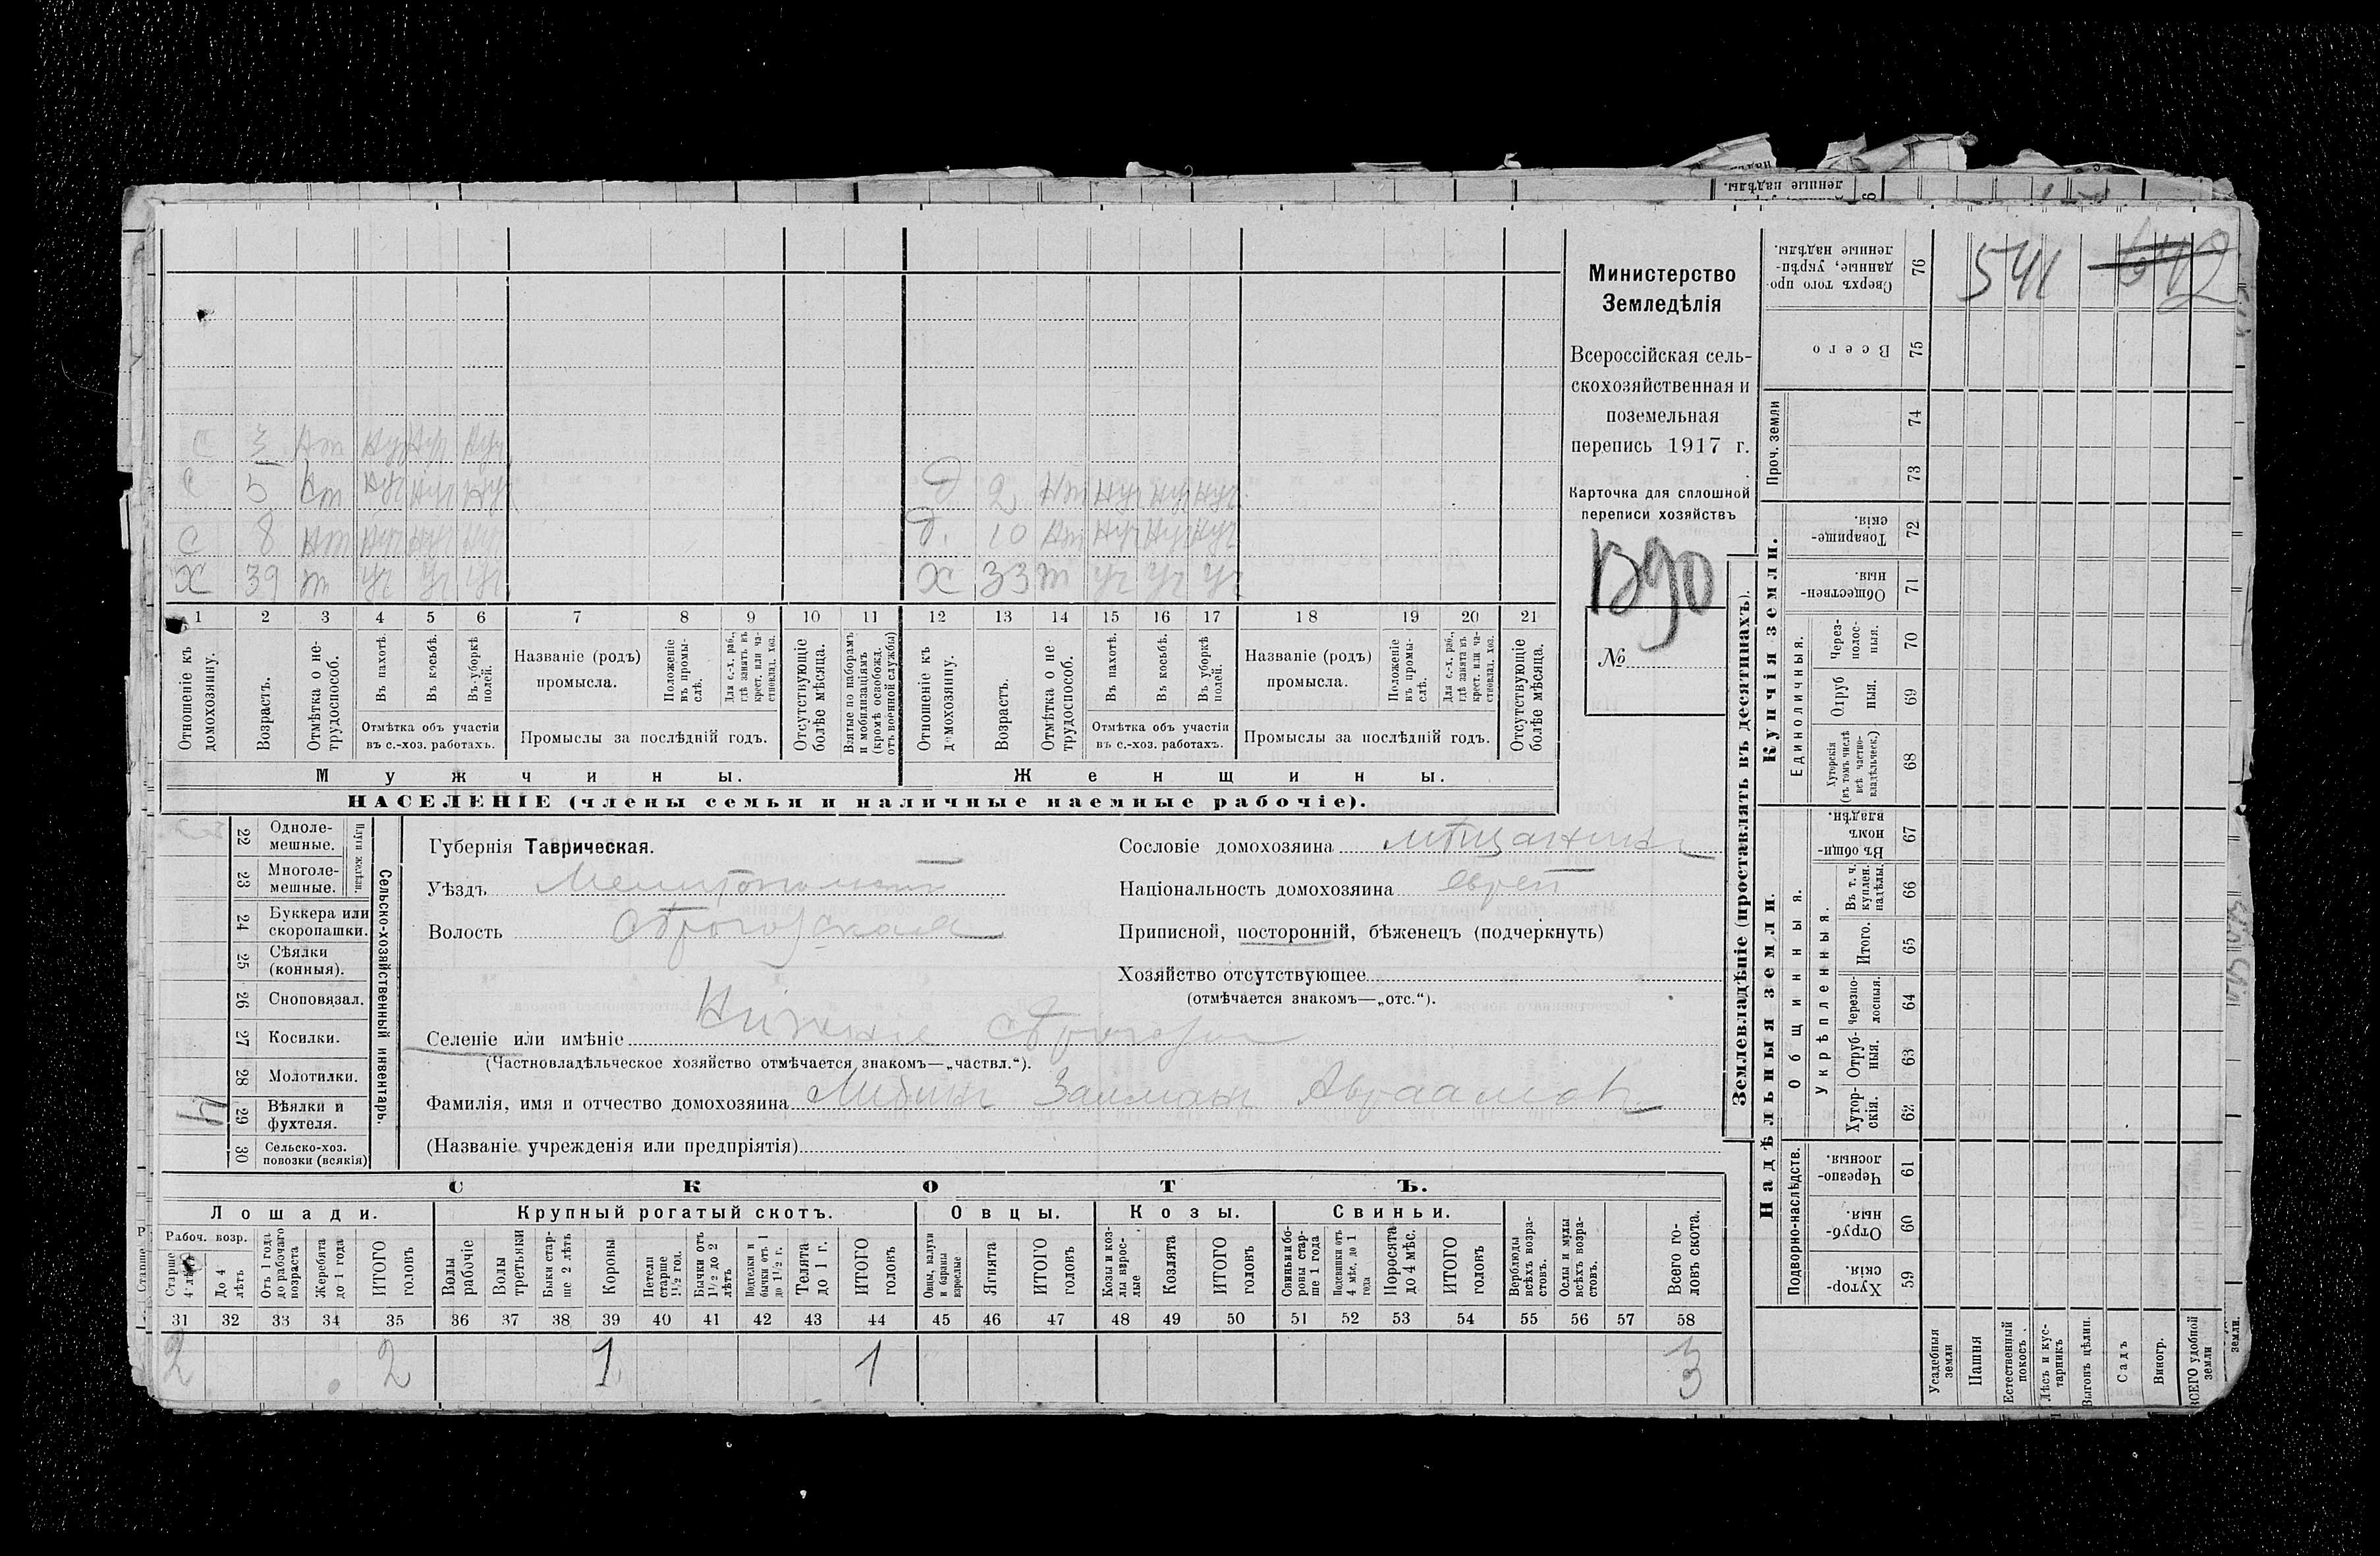 541 642
Министерство
Земледѣлія
Всероссійская сель-
скохозяйственная и
поземельная
перепись 1917 г.
Карточка для сплошной
переписи хозяйствъ
№
С 3 Нт Нуч Нуч Нуч
С 5 Нт Нуч Нуч Нуч
С 8 Нт Нуч Нуч Нуч
Х 39 т Уч Уч Уч
Д 2 Нт Нуч Нуч Нуч
Д. 10 Нт Нуч Нуч Нуч
Х 33 т Уч Уч Уч
1 2 3 4 5 6 7 8 9 10 11 12 13 14 15 16 17 18 19 20 21
Отношеніе къ домохозяину.
Возрастъ.
Отмѣтка о не-трудоспособ.
Въ пахотѣ.
Въ косьбѣ.
Въ уборкѣ полей.
Отмѣтка объ участіи
въ с.-хоз. работахъ.
Названіе (родъ)
промысла.
Положеніе въ промы-слѣ.
Для с.-х. раб., гдѣ занятъ въ крест. или ча-стновлад. хоз.
Промыслы за послѣдній годъ.
Отсутствующіе болѣе мѣсяца.
Взятые по наборамъ и мобилизаціямъ (кромѣ освобожд. отъ военной службы)
Отношеніе къ домохозяину.
Возрастъ.
Отмѣтка о не трудоспособ.
Въ пахотѣ.
Въ косьбѣ.
Въ уборкѣ полей.
Отмѣтка объ участіи
въ с.-хоз. работахъ.
Названіе (родъ)
промысла.
Положеніе въ промы-слѣ.
Для с.-х. раб., гдѣ занята въ крест. или ча-стновлад. хоз.
Промыслы за послѣдній годъ.
Отсутствующіе болѣе мѣсяца.
Мужчины.
Женщины.
НАСЕЛЕНІЕ (члены семьи и наличные наемные рабочіе).
22 Одноле-мешные.
23 Многоле-мешные.
Плуги желѣзн.
24 Буккера или скоропашки.
25 Сѣялки (конныя).
26 Сноповязал.
27 Косилки.
28 Молотилки.
29 Вѣялки и фухтеля.
30 Сельско-хоз. повозки (всякія)
Сельско-хозяйственный инвентарь.
Губернія Таврическая.
Уѣздъ Мелитопольский
Волость Сѣрогозская
Селеніе или имѣніе Нижніе Сѣрогозы
(Частновладѣльческое хозяйство отмѣчается знакомъ—„частвл.“).
Фамилія, имя и отчество домохозяина Либинъ Залманъ Авраамов.
(Названіе учрежденія или предпріятія)
Сословіе домохозяина мѣщанинъ
Національность домохозяина еврей
Приписной, посторонній, бѣженецъ (подчеркнуть)
Хозяйство отсутствующее
(отмѣчается знакомъ—„отс.“).
СКОТЪ.
Лошади.
Крупный рогатый скотъ.
Овцы.
Козы.
Свиньи.
Рабоч. возр.
Старше 4 лѣтъ
До 4 лѣтъ
Отъ 1 года до рабочаго возраста
Жеребята до 1 года
ИТОГО головъ
Волы рабочіе
Волы третьяки
Быки стар-ше 2 лѣтъ
Коровы
Нетели старше 1 1/2 год.
Бычки отъ 1 1/2 до 2 лѣтъ
Подтелки и бычки отъ 1 до 1 1/2 г.
Телята до 1 г.
ИТОГО головъ
Овцы, валухи и бараны взрослые
Ягнята
ИТОГО головъ
Козы и коз-лы взрос-лые
Козлята
ИТОГО головъ
Свиньи и бо-ровы стар-ше 1 года
Подсвинки отъ 4 мѣс. до 1 года
Поросята до 4 мѣс.
ИТОГО головъ
Верблюды всѣхъ возра-стовъ.
Ослы и мулы всѣхъ возра-стовъ.
Всего го-ловъ скота.
31 32 33 34 35 36 37 38 39 40 41 42 43 44 45 46 47 48 49 50 51 52 53 54 55 56 57 58
2 2 1 1 3
Землевладѣніе (проставлять въ десятинахъ).
Купчія земли.
Надѣльныя земли.
Сверхъ того про-данные, укрѣп-ленные надѣлы. 76
Всего 75
Проч. земли 74
73
Товарище-скія. 72
Обществен-ныя. 71
Единоличныя.
Через-полос-ныя. 70
Отруб ныя. 69
Хуторскія (въ томъ числѣ всѣ частно-владѣльческ.) 68
Въ общи-номъ владѣн. 67
Общинныя.
Укрѣпленныя.
Въ т. ч. куплен. надѣлы. 66
Итого. 65
Черезпо-лосныя. 64
Отруб-ныя. 63
Хутор-скія. 62
Подворно-наслѣдств.
Черезпо-лосныя. 61
Отруб-ныя. 60
Хутор-скія. 59
Усадебныя земли
Пашня
Естественный покосъ.
Лѣсъ и кус-тарникъ
Выгонъ цѣлин.
Садъ
Виногр.
ВСЕГО удобной земли
земли.